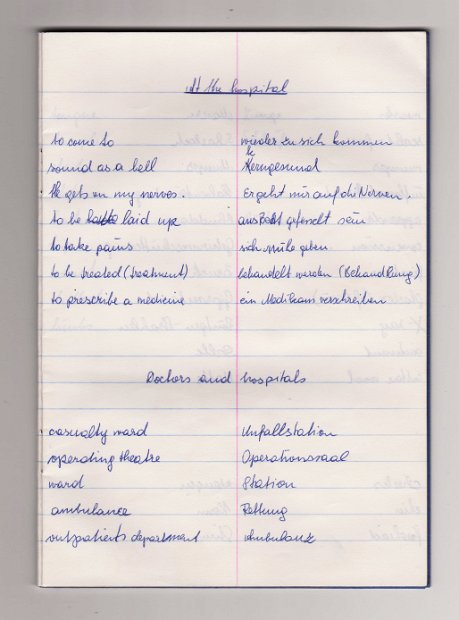 At the hospital
to come to wieder zu sich kommen
sound as a bell kerngesund
He gets on my nerves. Er geht mir auf die Nerven.
to be laid up ans Bett gefesselt sein
to take pains sich Mühe geben
to be treated (treatment) behandelt werden (Behandlung)
to prescribe a medicine ein Medikam verschreiben
Doctors and hospitals
casualty ward Unfallstation
operating theatre Operationssaal
ward Station
ambulance Rettung
outpatients department Ambulanz